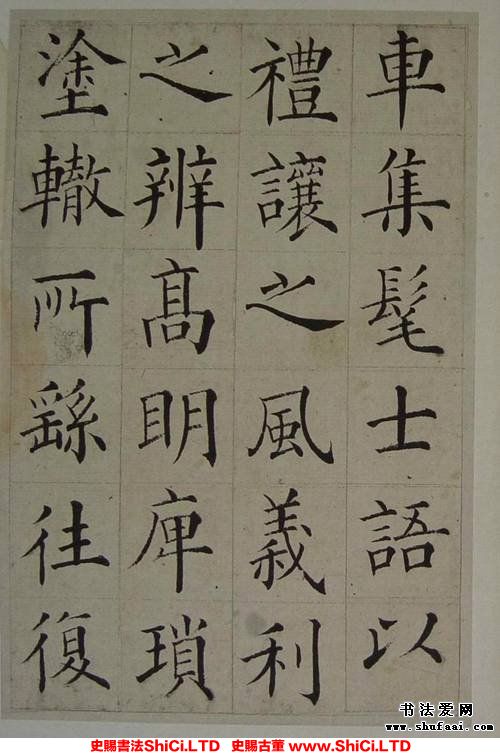 車集髦士語以
禮讓之風義利
之辨髙明庳瑣
塗轍所繇往復
书法爱网
www.shufaai.com
史賜書法ShiCi.LTD 史賜古董 www.ShiCi.LTD